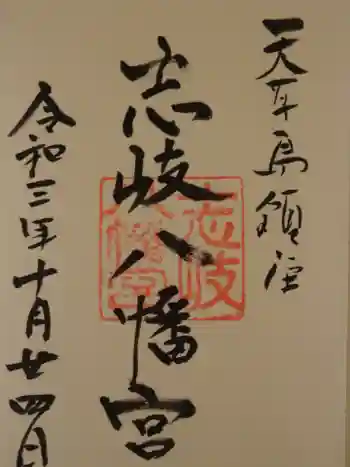 天草島鎮座
志岐八幡宮
志岐八幡宮
令和三年十月廿四日